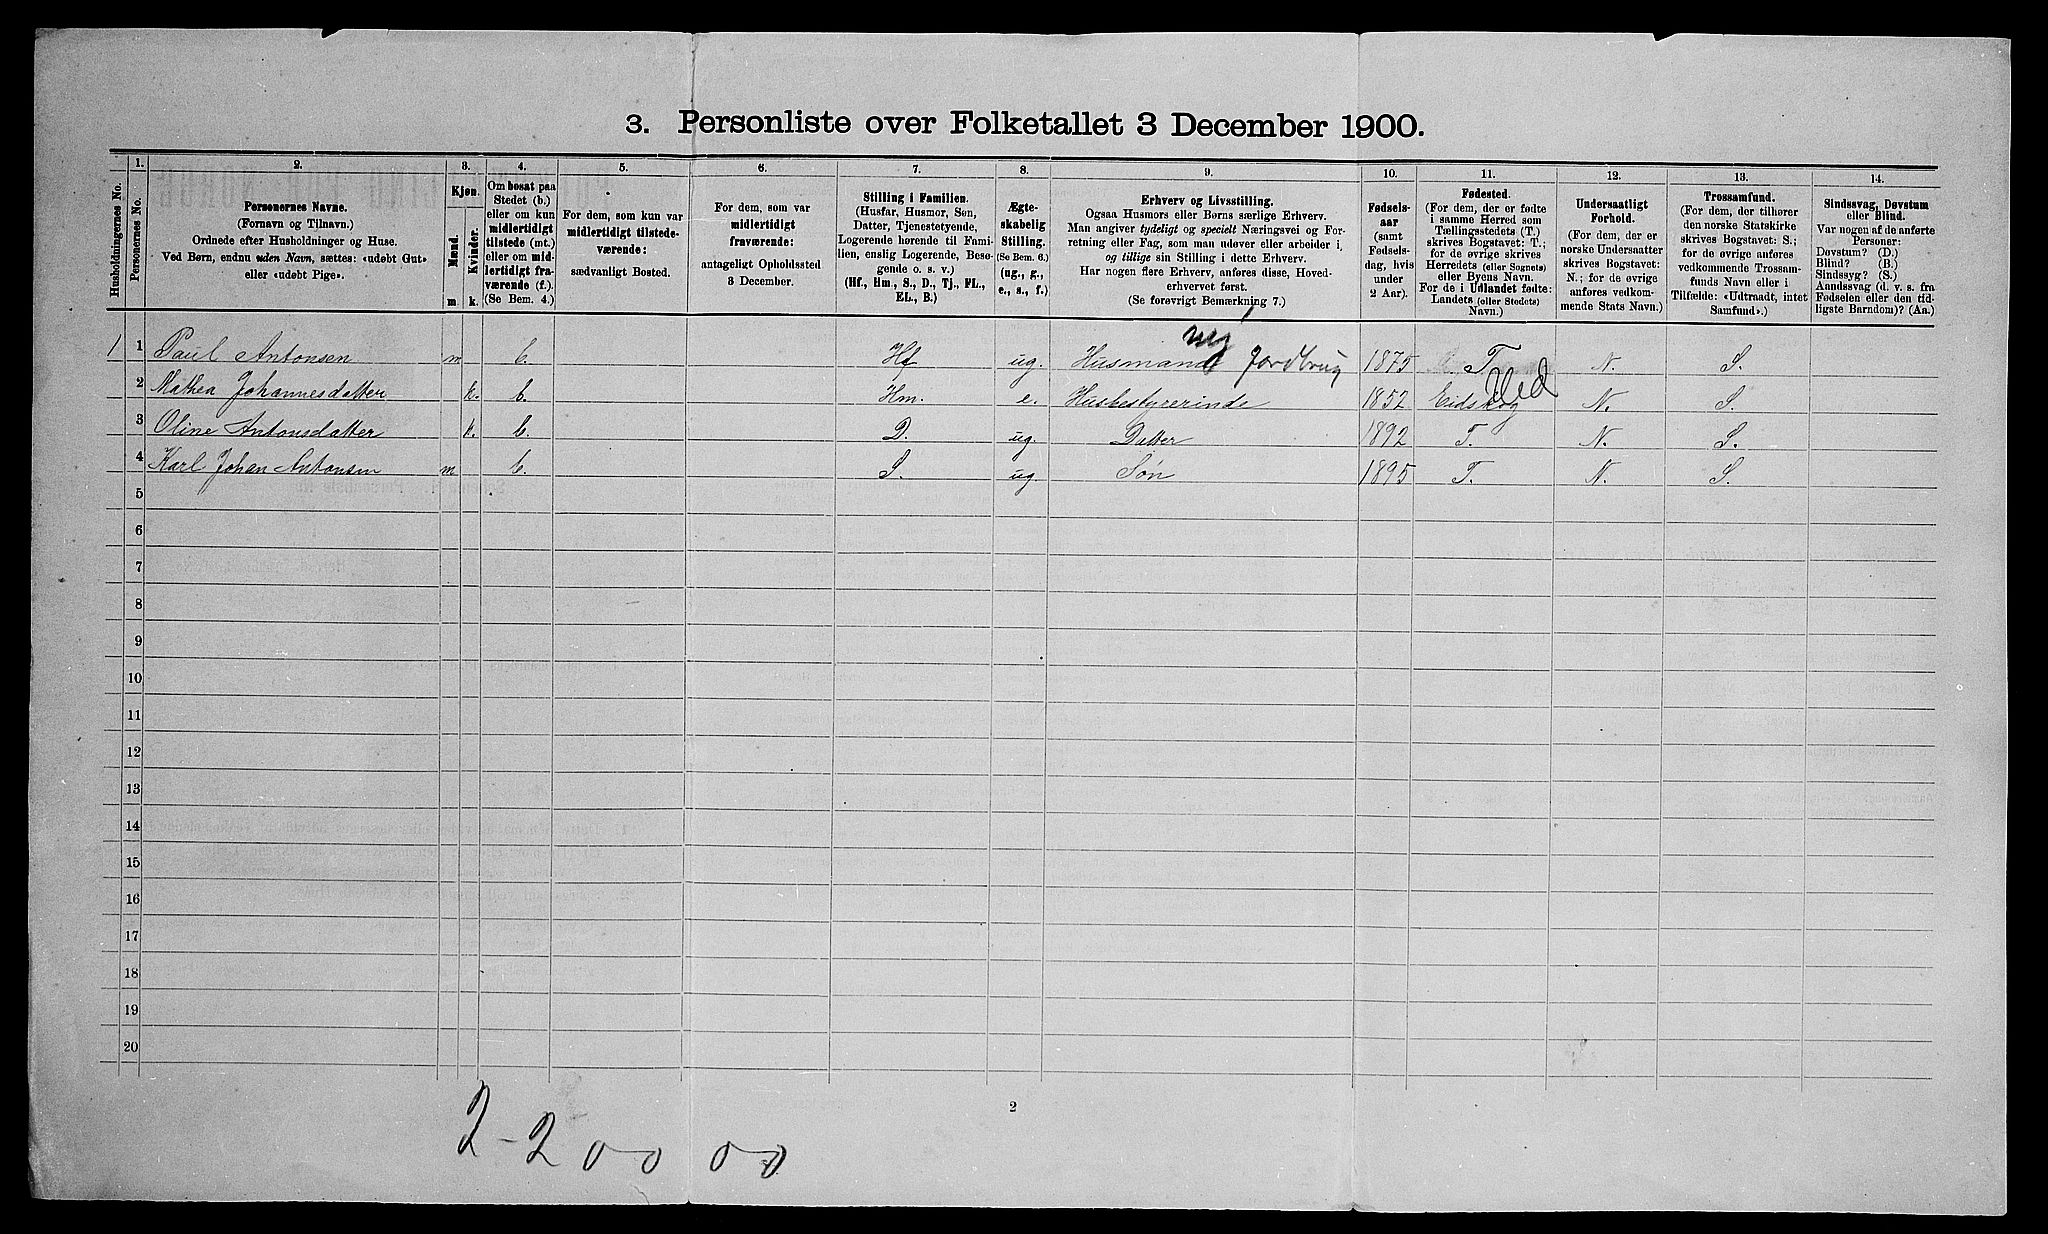 3. Personliste over Folketallet 3 December 1900.
1. 2. 3. 4. 5. 6. 7. 8. 9. 10. 11. 12. 13. 14.
Husholdningernes No.
Personernes No.
Personernes Navne.
(Fornavn og Tilnavn.)
Ordnede efter Husholdninger og Huse.
Ved Børn, endnu uden Navn, sættes: «udøbt Gut»
eller «udøbt Pige».
Kjøn.
Mænd.
Kvinder.
m. k.
Om bosat paa
Stedet (b.)
eller om kun
midlertidigt
tilstede (mt.)
eller om mid-
lertidigt fra-
værende (f.).
(Se Bem. 4.)
For dem, som kun var
midlertidigt tilstede-
værende:
sædvanligt Bosted.
For dem, som var
midlertidigt
fraværende:
antageligt Opholdssted
3 December.
Stilling i Familien.
(Husfar, Husmor, Søn,
Datter, Tjenestetyende,
Logerende hørende til Fami-
lien, enslig Logerende, Besø-
gende o. s. v.)
(Hf., Hm., S., D., Tj., FL.,
EL., B.)
Ægte-
skabelig
Stilling.
(Se Bem. 6.)
(ug., g.,
e., s., f.)
Erhverv og Livsstilling.
Ogsaa Husmors eller Børns særlige Erhverv.
Man angiver tydeligt og specielt Næringsvei og For-
retning eller Fag, som man udøver eller arbeider i,
og tillige sin Stilling i dette Erhverv.
Har nogen flere Erhverv, anføres disse, Hoved-
erhvervet først.
(Se forøvrigt Bemærkning 7.)
Fødsels-
aar
(samt
Fødsels-
dag, hvis
under
2 Aar).
Fødested.
(For dem, der er fødte
i samme Herred som
Tællingsstedets (T.)
skrives Bogstavet: T.;
for de øvrige skrives
Herredets (eller Sognets)
eller Byens Navn.
For de i Udlandet fødte:
Landets (eller Stedets)
Navn.)
Undersaatligt
Forhold.
(For dem, der er
norske Undersaatter
skrives Bogstavet:
N.; for de øvrige
anføres vedkom-
mende Stats Navn.)
Trossamfund.
(For dem, der tilhører
den norske Statskirke
skrives Bogstavet: S.;
for de øvrige anføres
vedkommende Trossam-
funds Navn eller i
Tilfælde: «Udtraadt, intet
Samfund».)
Sindssvag, Døvstum
eller Blind.
Var nogen af de anførte
Personer:
Døvstum? (D.)
Blind? (B.)
Sindssyg? (S.)
Aandssvag (d. v. s. fra
Fødselen eller den tid-
ligste Barndom)? (Aa.)
1 1 Paul Antonsen m b. Hf ug. Husmand Jordbrug 1875 T. N. S.
2 Mathea Johannesdatter k. b. Hm. e. Husbestyrerinde 1852 Eidskog Hed N. S.
3 Oline Antonsdatter k. b. D. ug. Datter 1892 T. N. S.
4 Karl Johan Antonsen m b. S. ug. Søn 1895 T. N. S.
5
6
7
8
9
10
11
12
13
14
15
16
17
18
19
20
2
2-200 00